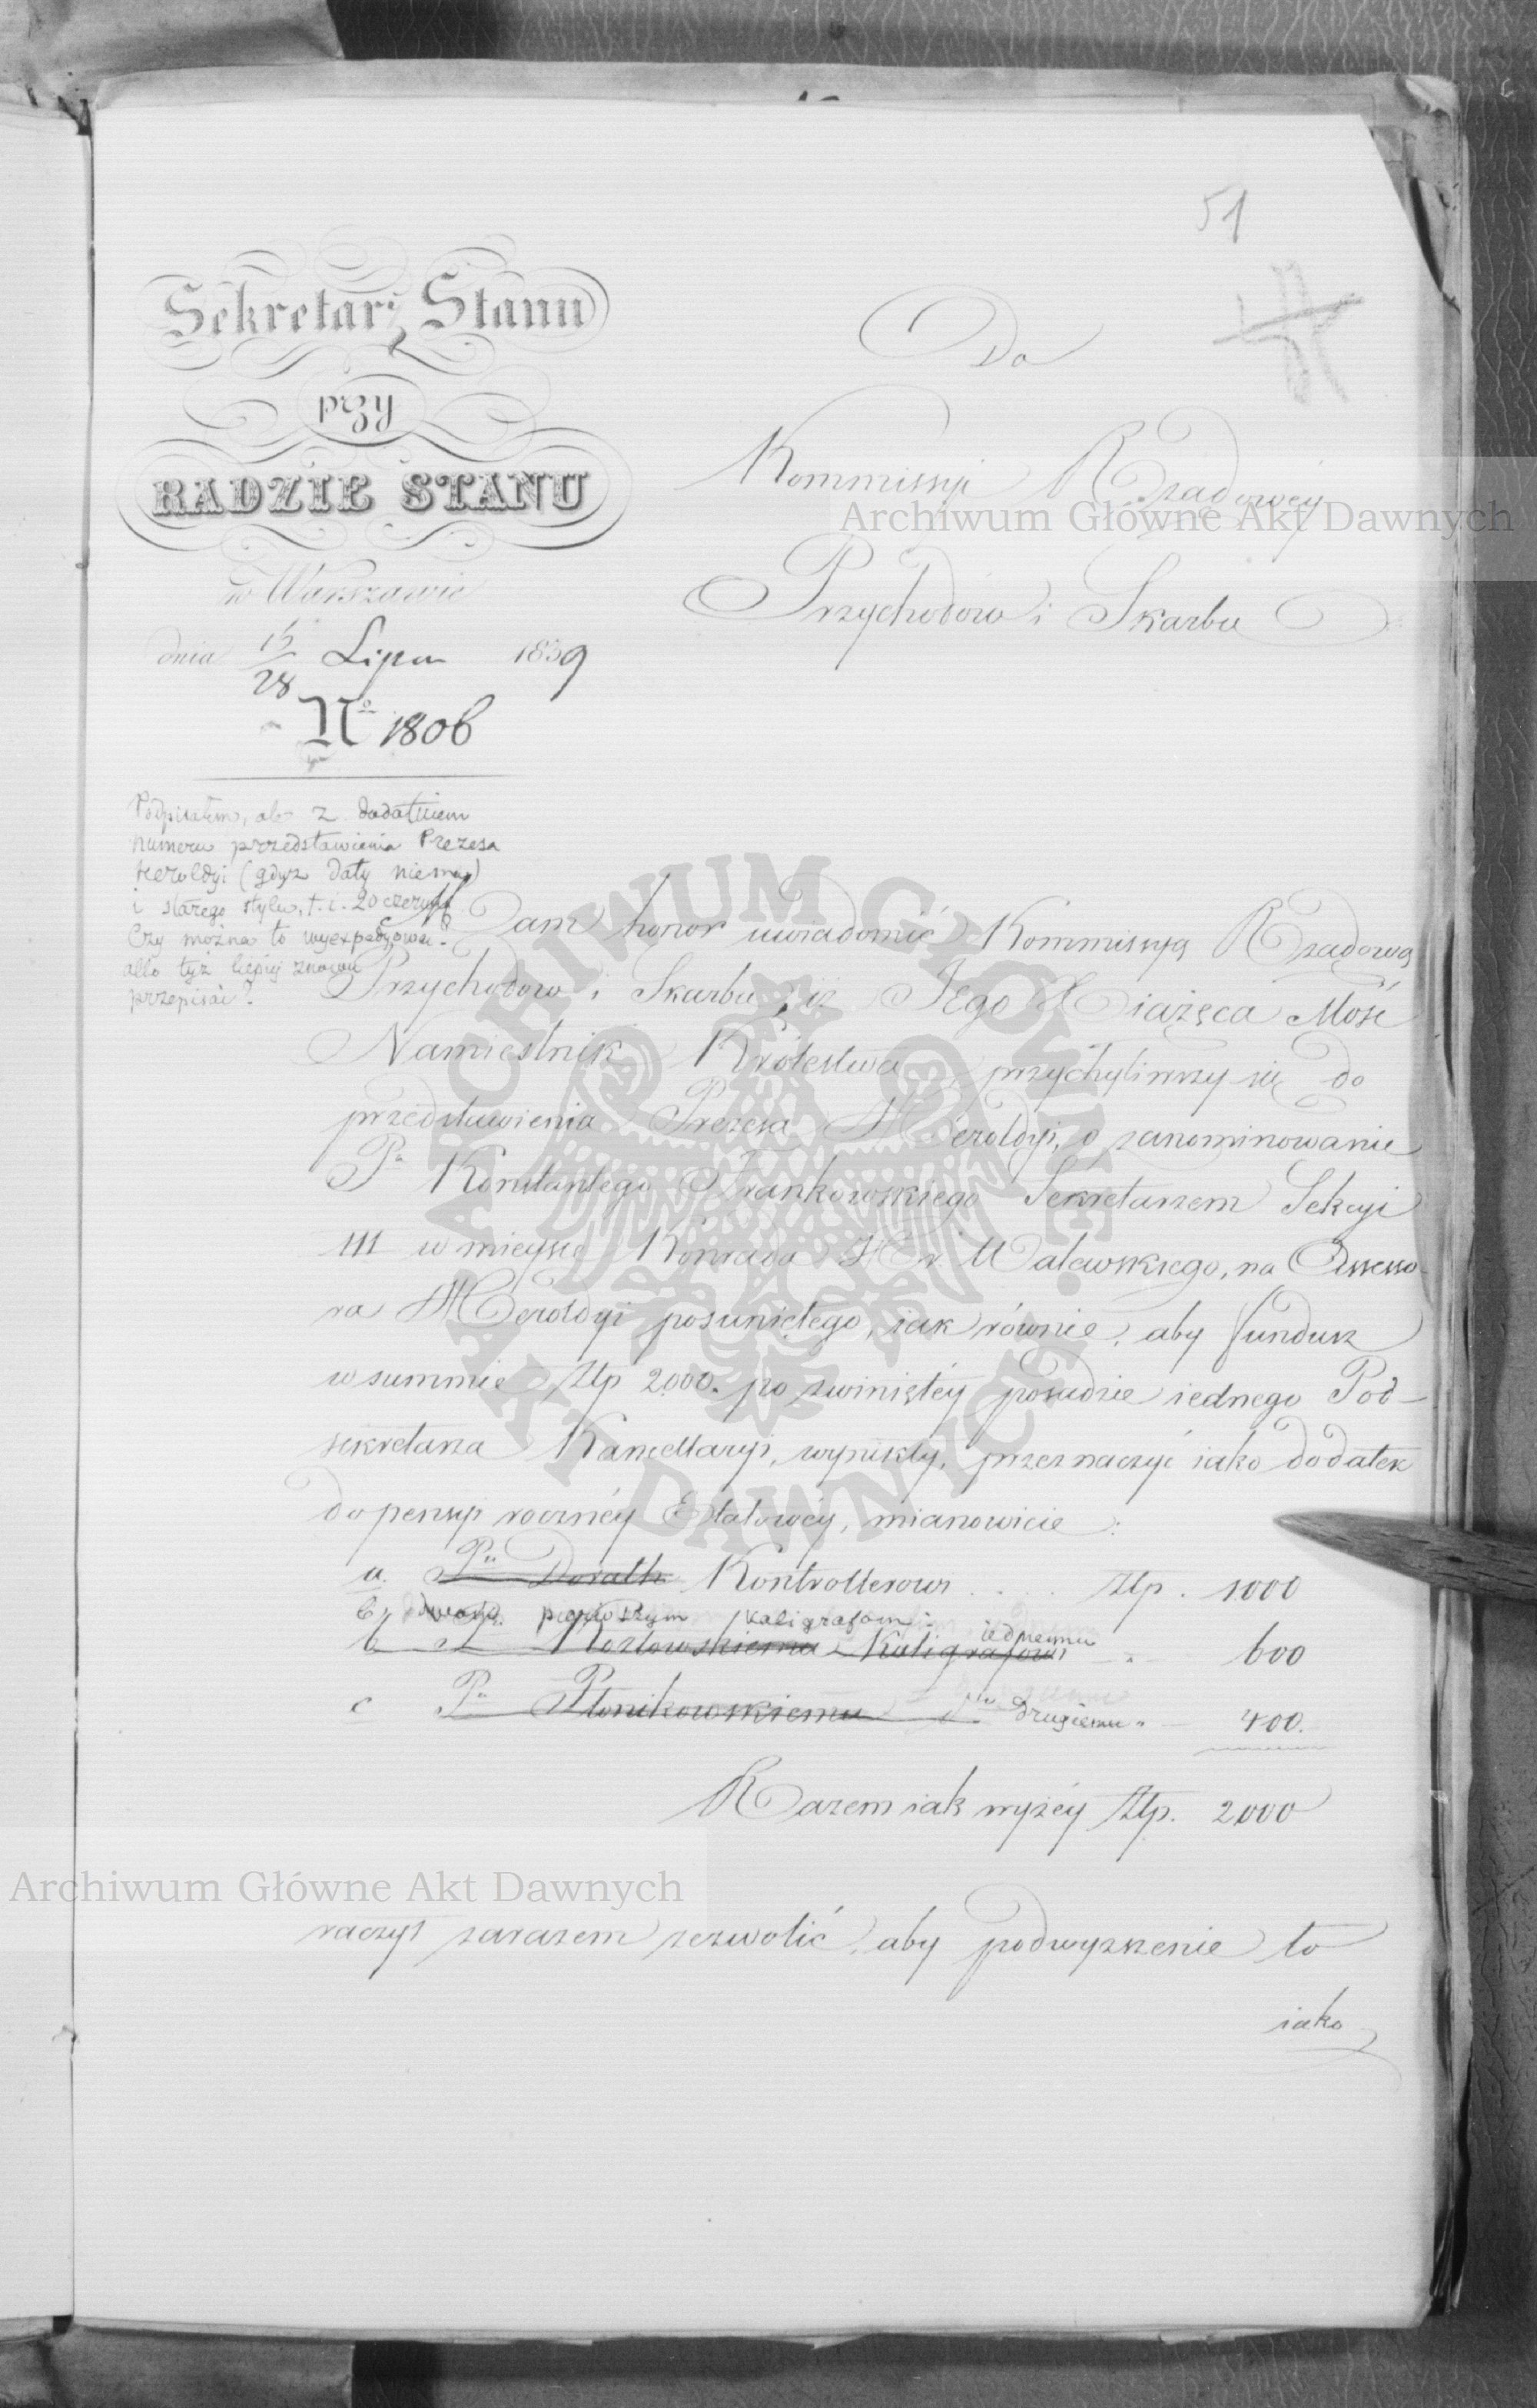 51
Sekretarz Stanu
przy
RADZIE STANU
w Warszawie
dnia 16/28 Lipca 1839
No 1806
Do
Kommissyi Rządowéy
Przychodów i Skarbu
Podpisałem, ale z dodatkiem
numeru przedstawienia Prezesa
Heroldyi (gdyż daty niema)
i starego stylu, t. i. 20 czerwca
Czy można to wyexpedyować
albo też lepiéj znowu
przepisać?
Mam honor uwiadomić Kommissyą Rządową
Przychodów i Skarbu, iż Jego Xiążęca Mość
Namiestnik Królestwa, przychyliwszy się do
przedstawienia Prezesa Heroldyi, o zanominowanie
Pa Konstantego Frankowskiego Sekretarzem Sekcyi
III w mieysce Konrada Hr. Walewskiego, na Assesso-
ra Heroldyi posuniętego, iak równie, aby fundusz
w summie Złp 2000. po zwiniętéy posadzie iednego Pod-
sekretarza Kancellaryi, wynikły, przeznaczyć iako dodatek
do pensyi rocznéy Etatowéy, mianowicie:
a. Pu Kontrollerowi . . . . Złp. 1000
b, dwom pierwszym kaligrafom:
b P. Kozłowskiemu Kaligrafowi iednemu „ 600
c Pu Płonikowskiemu drugiemu „ 400.
Razem iak wyżéy Złp. 2000
raczył zarazem zezwolić, aby podwyższenie to
iako
Archiwum Główne Akt Dawnych
Archiwum Główne Akt Dawnych
ARCHIWUM GŁÓWNE
AKT DAWNYCH